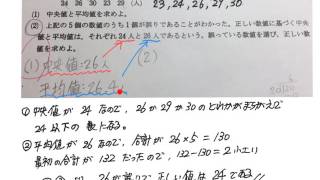 34 26 30 23 29 (人) 23, 24, 26, 29, 30
(1) 中央値と平均値を求めよ。
(2) 上記の5個の数値のうち1個が誤りであることがわかった。正しい数値に基づく中央
値と平均値は、それぞれ24人と26人であるという。誤っている数値を選び、正しい数値
を求めよ。
(1) 中央値=26人
(2)
平均値=26.4人
① 中央値が24なので、26か29か30のどれかがまちがえで
24以下の数になる。
② 平均値が26なので、合計が26×5=130
最初の合計が132だったので、132-130=2小さい
26が誤りで正しい値は24である